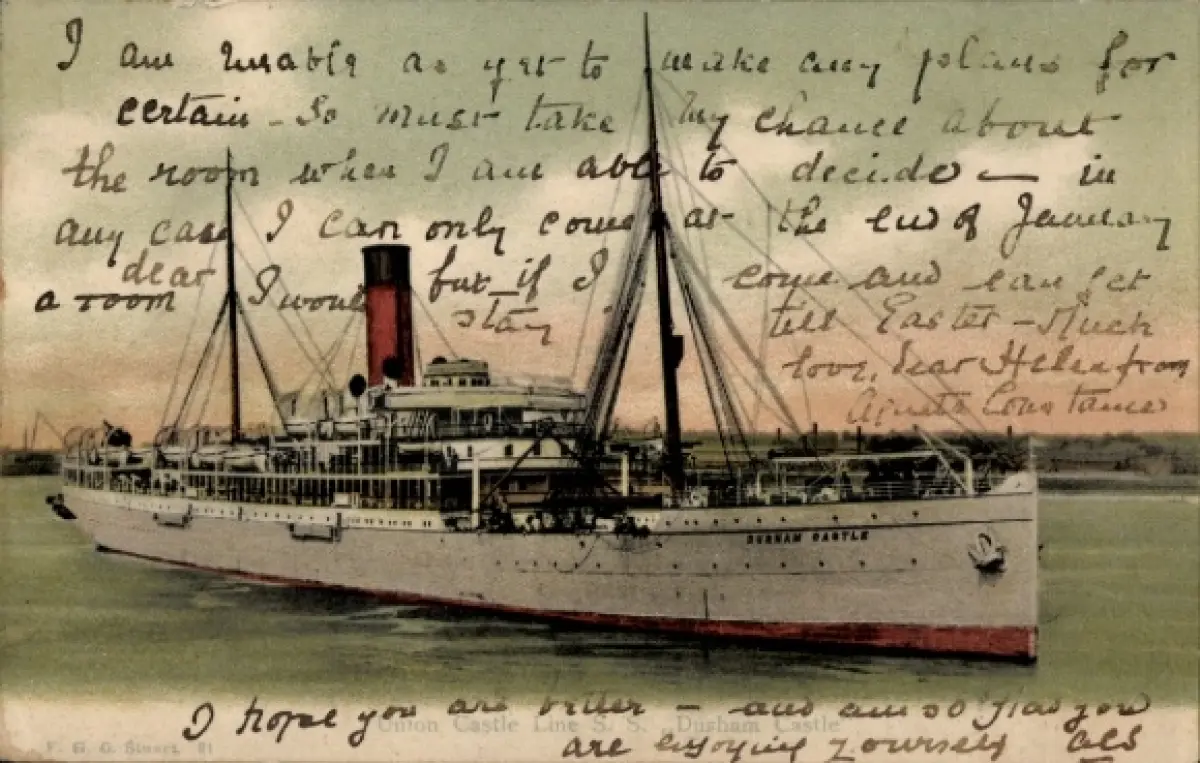 I am unable as yet to make any plans for
certain - So must take my chance about
the room when I am able to decide — in
any case I can only come at the end of January
dear I would but if I come and can get
a room stay till Easter - Much
love, dear Helen from
Constance
DURHAM CASTLE
I hope you are better - and am so glad you
Union Castle Line S. S. Durham Castle
are enjoying yourself
F. G. O. Stuart. 81